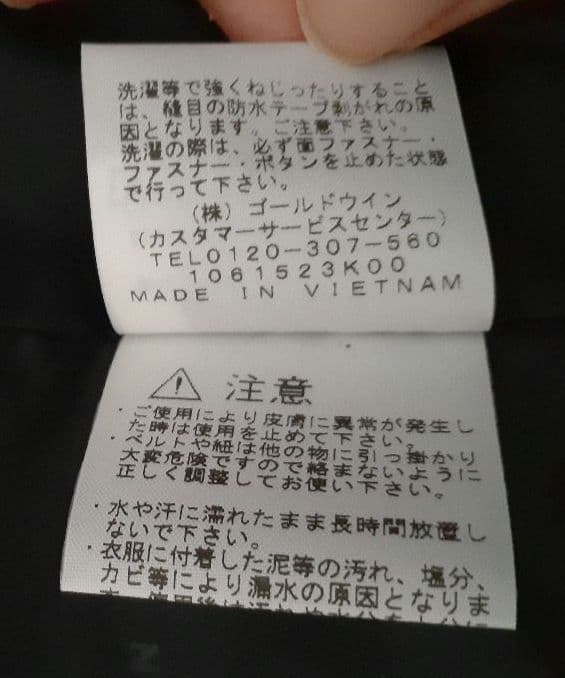 洗濯等で強くねじったりすること
は、縫目の防水テープ剥がれの原
因となります。ご注意下さい。
洗濯の際は、必ず面ファスナー・
ファスナー・ボタンを止めた状態
で行って下さい。
(株)ゴールドウイン
(カスタマーサービスセンター)
TEL0120-307-560
1061523K00
MADE IN VIETNAM
注意
・ご使用により皮膚に異常が発生し
た時は使用を止めて下さい。
・ベルトや紐は他の物に引っ掛かり
大変危険ですので絡まないように
正しく調整してお使い下さい。
・水や汗に濡れたまま長時間放置し
ないで下さい。
・衣服に付着した泥等の汚れ、塩分、
カビ等により漏水の原因となりま